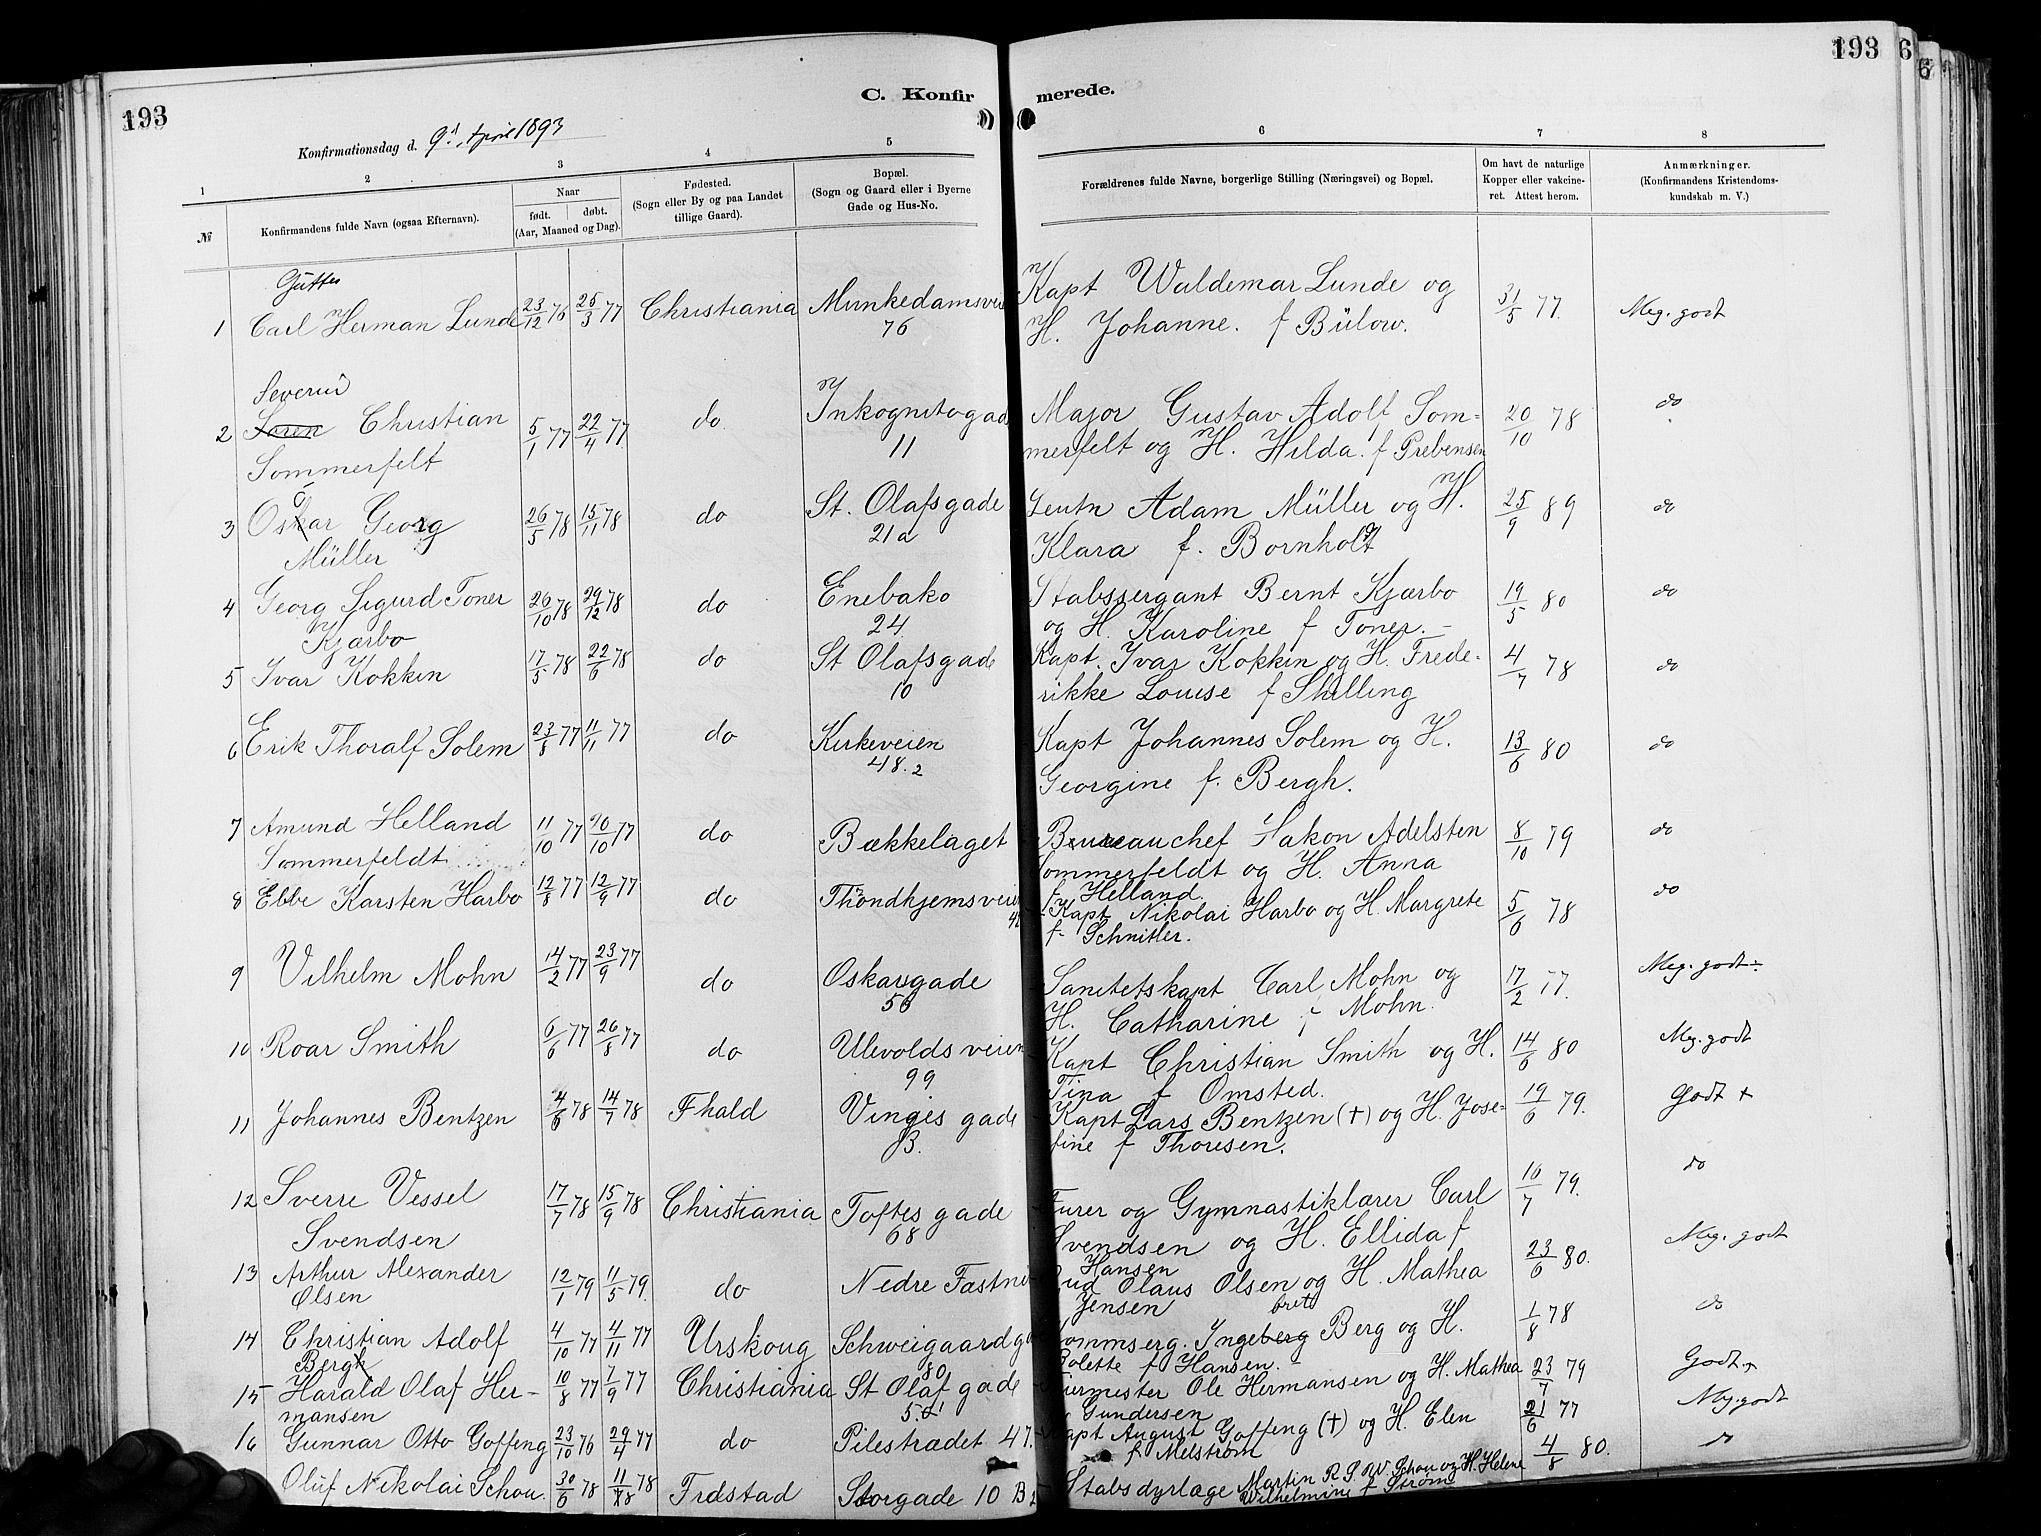 193
193 6
6
C. Konfir
merede.
Konfirmationsdag d. 9d April 1893
1
2
3
4
5
6
7
8
№
Konfirmandens fulde Navn (ogsaa Efternavn).
Naar
født. døbt.
(Aar, Maaned og Dag).
Fødested.
(Sogn eller By og paa Landet
tillige Gaard).
Bopæl.
(Sogn og Gaard eller i Byerne
Gade og Hus-No.
Forældrenes fulde Navne, borgerlige Stilling (Næringsvei) og Bopæl.
Om havt de naturlige
Kopper eller vakcine-
ret. Attest herom.
Anmærkninger.
(Konfirmandens Kristendoms-
kundskab m. V.)
Gutter
1 Carl Herman Lunde 23/12 76 25/3 77 Christiania Munkedamsvei
76
Kapt Waldemar Lunde og
H. Johanne. f Bülow.
31/5 77. Meg. godt
Severin
2 Søren Christian 5/1 77 22/4 77 do Inkognitogad
Sommerfelt 11
Major Gustav Adolf Som-
merfelt og H. Hilda. f Prebensen
20/10 78 do
3 Oskar Georg 26/5 78 15/11 78 do St. Olafsgade
Müller 21a
Leutn Adam Müller og H.
Klara f. Bornholdt
25/9 89 do
4 Georg Sigurd Toner 26/10 78 29/12 78 do Enebakv
Kjærbo 24
Stabssergant Bernt Kjærbo
og H. Karoline f Toner. -
19/5 80 do
5 Ivar Kokkin 17/5 78 22/6 78 do St Olafsgade
10
Kapt. Ivar Kokkin og H. Frede-
rikke Louise f Shilling
4/7 78 do
6 Erik Thoralf Solem 23/8 77 11/11 77 do Kirkeveien
48.2
Kapt Johannes Solem og H.
Georgine f. Bergh.
13/6 80 do
7 Amund Helland 11/10 77 do Bækkelaget
Sommerfeldt
Bureauchef Hakon Adelsten
Sommerfeldt og H. Anna
f Helland.
8/10 79 do
8 Ebbe Karsten Harbo 12/8 77 12/9 77 do Throndhjemsveien
Kapt Nikolai Harbo og H. Margrete
f. Schnitler.
5/6 78 do
9 Vilhelm Mohn 14/2 77 23/9 77 do Oskarsgade
56
Sanitetskapt Carl Mohn og
H. Catharine f Mohn.
17/2 77. Meg. godt ÷
10 Roar Smith 6/6 77 26/8 77 do Ulevoldsveien
99
Kapt Christian Smith og H.
Tina f Omsted.
14/6 80 Meg. godt
11 Johannes Bentzen 4/6 78 14/7 78 Fhald Vinges gade
B.
Kapt Lars Bentzen (+) og H. Jose-
fine f Thoresen.
19/6 79. Godt +
12 Sverre Vessel 17/7 78 15/9 78 Christiania Toftes gade
Svendsen 68
Furer og Gymnastiklærer Carl
Svendsen og H. Ellida f
Hansen
10/7 79. do
13 Arthur Alexander 12/1 79 11/5 79. do Nedre Fastn
Olsen
Olaus Olsen og H. Mathea
Jensen
23/6 80. Meg. godt
14 Christian Adolf 4/10 77 4/11 77 Urskoug Schweigaardga
Bergh 80
bret
Kommserg. Ingeberg Berg og H.
Bolette f Hansen. -
1/8 78 do
15 Harald Olaf Her- 10/8 77 7/9 77 Christiania St Olaf gade
mansen 5.d
Ole Hermansen og H. Mathea
Gundersen
23/7 79 Godt +
16 Gunnar Otto Goffeng 23/10 76 29/4 77 do Pilestrædet 47.
Kapt August Goffeng (+) og H. Elen
f Melstrøm
21/6 77 Meg. godt
Oluf Nikolai Schou. 30/6 78 11/8 78 Frdstad Storgade 10 B
Stabsdyrlæge Martin R. S. W. Schou og H. Helene
Wilhelmine f Strøm
4/8 80. do